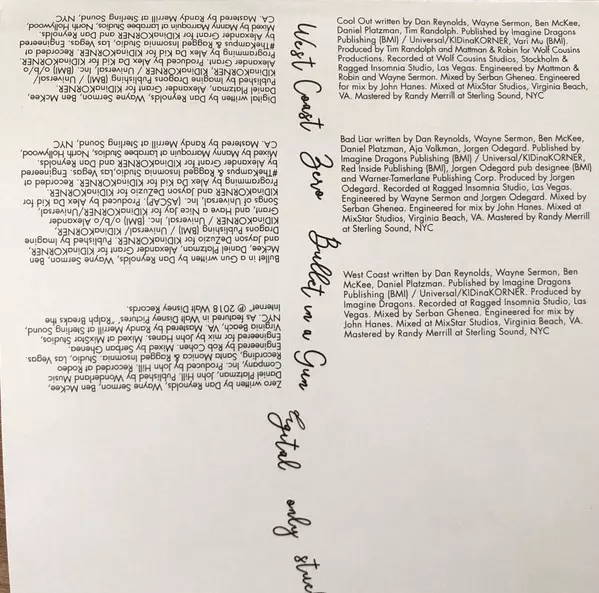 Cool Out written by Dan Reynolds, Wayne Sermon, Ben McKee,
Daniel Platzman, Tim Randolph. Published by Imagine Dragons
Publishing (BMI) / Universal/KIDinaKORNER, Vari Mu (BMI).
Produced by Tim Randolph and Mattman & Robin for Wolf Cousins
Productions. Recorded at Wolf Cousins Studios, Stockholm &
Ragged Insomnia Studio, Las Vegas. Engineered by Mattman &
Robin and Wayne Sermon. Mixed by Serban Ghenea. Engineered
for mix by John Hanes. Mixed at MixStar Studios, Virginia
Beach, VA. Mastered by Randy Merrill at Sterling Sound, NYC
Bad Liar written by Dan Reynolds, Wayne Sermon, Ben McKee,
Daniel Platzman, Aja Volkman, Jorgen Odegard. Published by
Imagine Dragons Publishing (BMI) / Universal/KIDinaKORNER,
Red Inside Publishing (BMI), Jorgen Odegard pub designee (BMI)
and Warner-Tamerlane Publishing Corp. Produced by Jorgen
Odegard. Recorded at Ragged Insomnia Studio, Las Vegas.
Engineered by Wayne Sermon and Jorgen Odegard. Mixed by
Serban Ghenea. Engineered for mix by John Hanes. Mixed at
MixStar Studios, Virginia Beach, VA. Mastered by Randy Merrill
at Sterling Sound, NYC
West Coast written by Dan Reynolds, Wayne Sermon, Ben
McKee, Daniel Platzman. Published by Imagine Dragons
Publishing (BMI) / Universal/KIDinaKORNER. Produced by
Imagine Dragons. Recorded at Ragged Insomnia Studio, Las
Vegas. Mixed by Serban Ghenea. Engineered for mix by
John Hanes. Mixed at MixStar Studios, Virginia Beach, VA.
Mastered by Randy Merrill at Sterling Sound, NYC
West Coast Zero Bullet in a Gun Digital only stuck
Zero written by Dan Reynolds, Wayne Sermon, Ben McKee,
Daniel Platzman, John Hill. Published by Wonderland Music
Company, Inc. Produced by John Hill. Recorded at Rodeo
Recording, Santa Monica & Ragged Insomnia Studio, Las Vegas.
Engineered by Rob Cohen. Mixed by Serban Ghenea.
Engineered for mix by John Hanes. Mixed at MixStar Studios,
Virginia Beach, VA. Mastered by Randy Merrill at Sterling Sound,
NYC. As featured in Walt Disney Pictures' "Ralph Breaks the
Internet" ℗ 2018 Walt Disney Records.
Bullet in a Gun written by Dan Reynolds, Wayne Sermon, Ben
McKee, Daniel Platzman, Alexander Grant for KIDinaKORNER
and Jayson DeZuzio for KIDinaKORNER. Published by Imagine
Dragons Publishing (BMI) / Universal/ KIDinaKORNER,
KIDinaKORNER / Universal, Inc. (BMI) o/b/o Alexander
Grant, and Have a Nice Jay for KIDinaKORNER/Universal,
Songs of Universal, Inc. (ASCAP). Produced by Alex Da Kid for
KIDinaKORNER and Jayson DeZuzio for KIDinaKORNER.
Programming by Alex Da Kid for KIDinaKORNER. Recorded at
#TheKampus & Ragged Insomnia Studio, Las Vegas. Engineered
by Alexander Grant for KIDinaKORNER and Dan Reynolds.
Mixed by Manny Marroquin at Larrabee Studios, North Hollywood,
CA. Mastered by Randy Merrill at Sterling Sound, NYC
Digital written by Dan Reynolds, Wayne Sermon, Ben McKee,
Daniel Platzman, Alexander Grant for KIDinaKORNER.
Published by Imagine Dragons Publishing (BMI) / Universal/
KIDinaKORNER, KIDinaKORNER / Universal, Inc. (BMI) o/b/o
Alexander Grant. Produced by Alex Da Kid for KIDinaKORNER.
Programming by Alex Da Kid for KIDinaKORNER. Recorded at
#TheKampus & Ragged Insomnia Studio, Las Vegas. Engineered
by Alexander Grant for KIDinaKORNER and Dan Reynolds.
Mixed by Manny Marroquin at Larrabee Studios, North Hollywood,
CA. Mastered by Randy Merrill at Sterling Sound, NYC